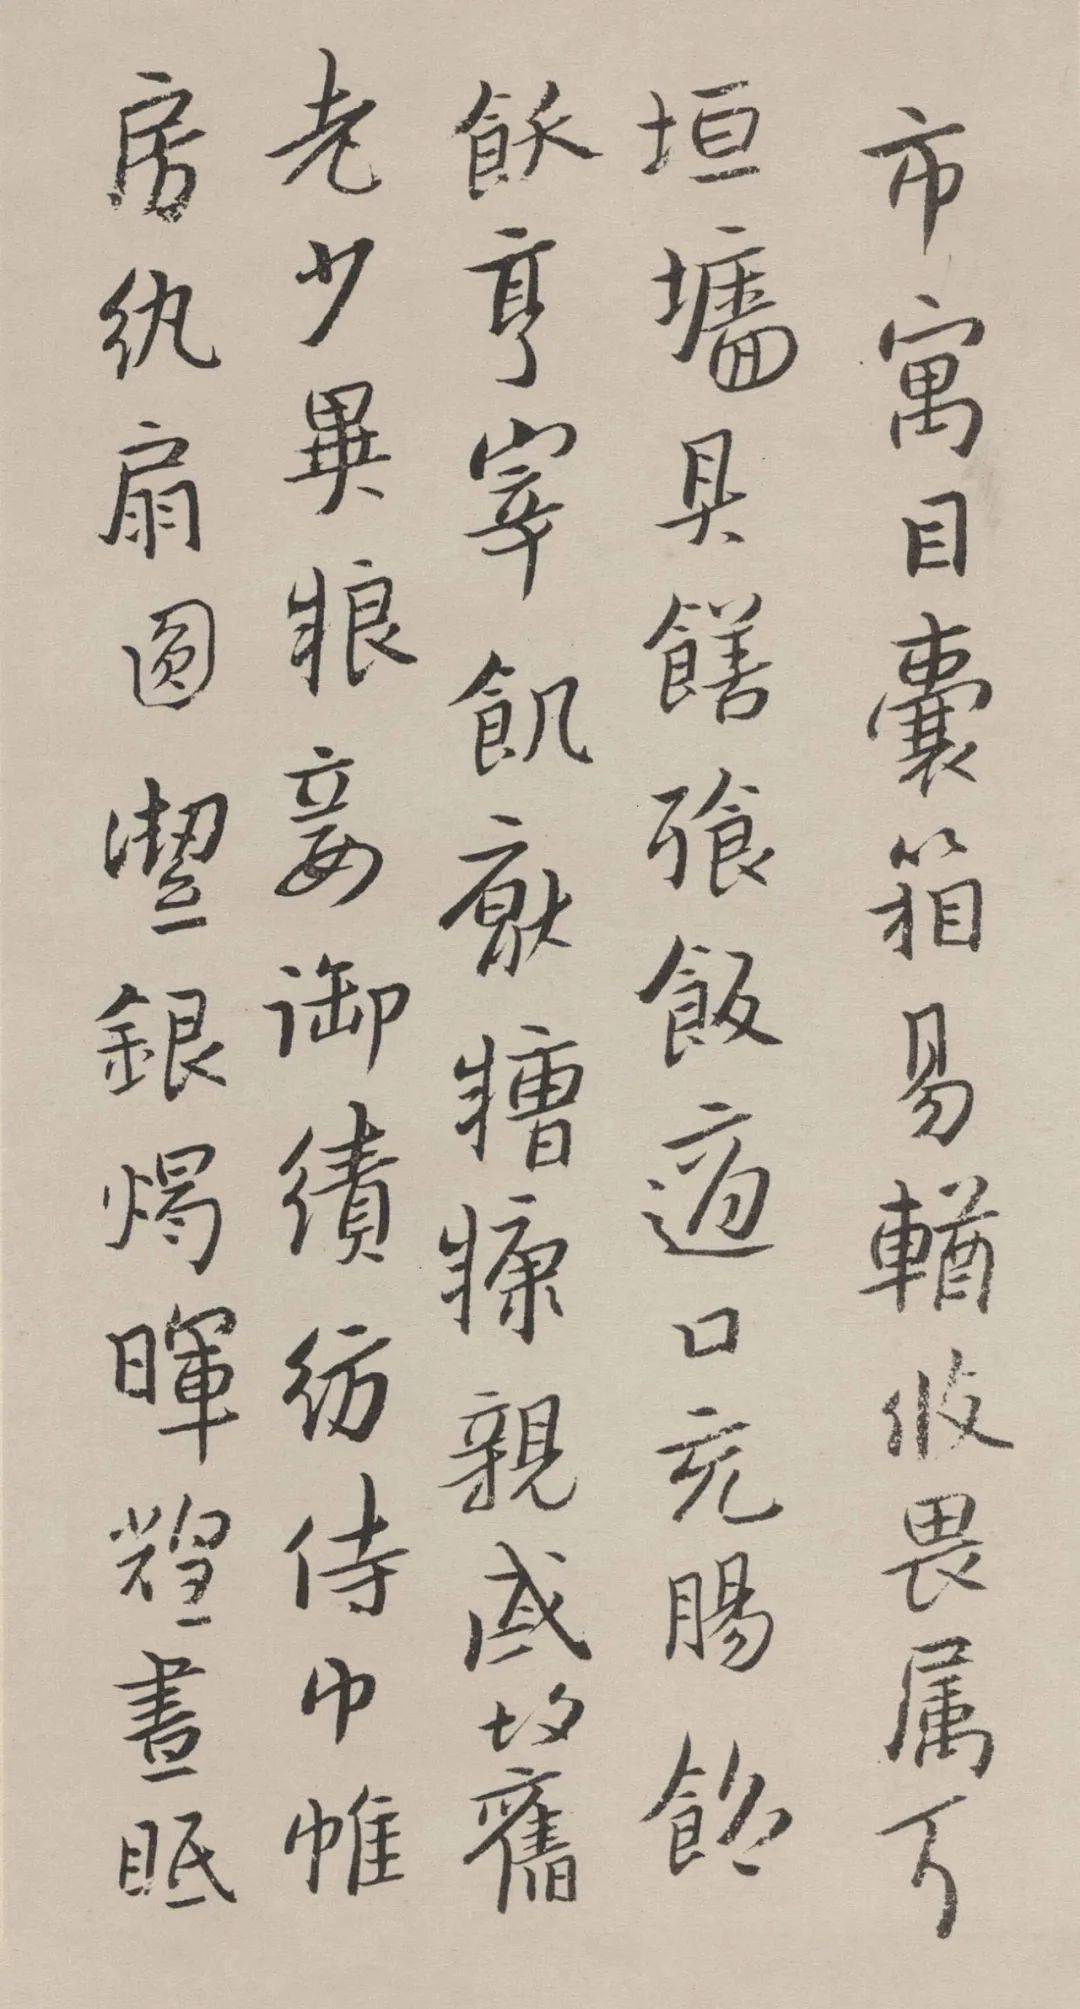 市寓目囊箱易輶攸畏属耳
垣墻具饍飡飯適口充腸飽
飫亨宰飢厭糟糠親戚故舊
老少異粮妾御績紡侍巾帷
房紈扇圓潔銀燭暉煌晝眠